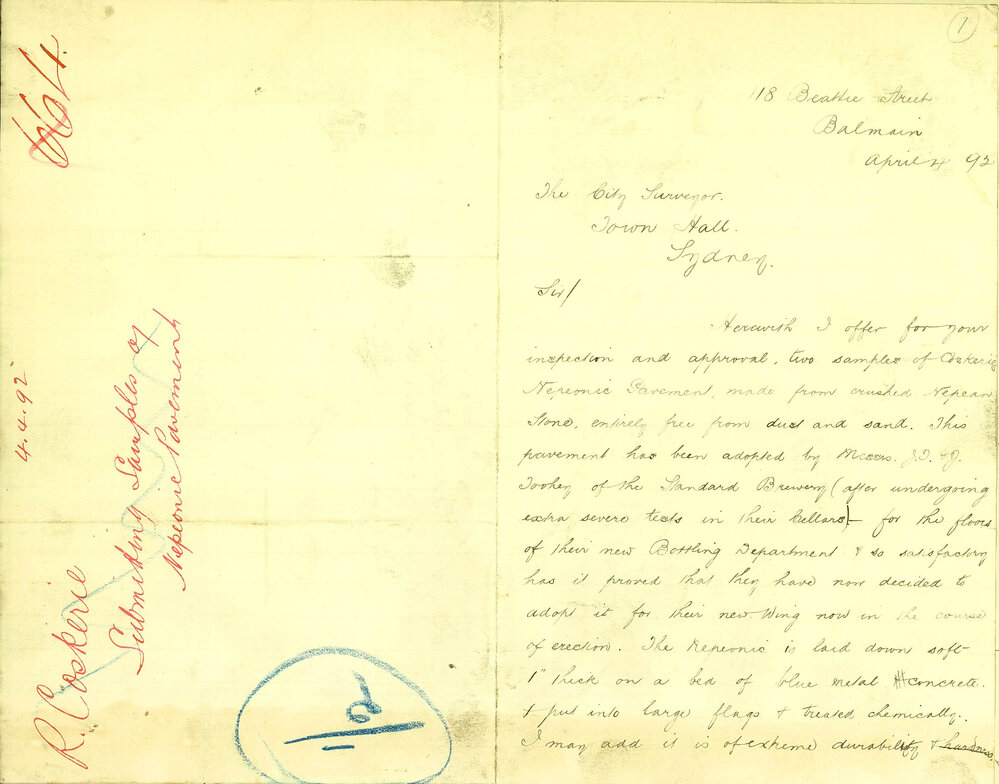 664.
4.4.92
R. Coskerie
Submitting Samples of
Nepeonic Pavement
1
118 Beattie Street
Balmain
April 4 92
The City Surveyor.
Town Hall.
Sydney.
Sir/
Herewith I offer for your
inspection and approval. two samples of Coskeries
Nepeonic Pavement, made from crushed Nepean
Stone, entirely free from dust and sand. This
pavement has been adopted by Messrs. J.T. & J.
Toohey of the Standard Brewery (after undergoing
extra severe tests in their Cellars) - for the floors
of their new Bottling Department & so satisfactory
has it proved that they have now decided to
adopt it for their new Wing now in the course
of erection. The Nepeonic is laid down soft
1" thick on a bed of blue metal concrete.
& put into large flags & treated chemically.
I may add it is of extreme durability & hardness.